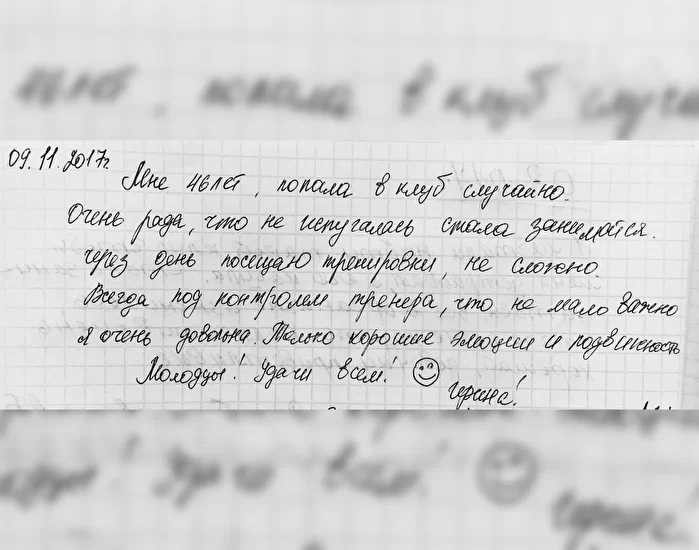 09.11.2017г.
Мне 46лет, попала в клуб случайно.
Очень рада, что не испугалась стала заниматся.
через день посещаю тренировки, не сложно.
Всегда под контролем тренера, что не мало важно
я очень довольна. Только хорошие эмоции и подвижность
Молодцы! Удачи всем!
Ирина!